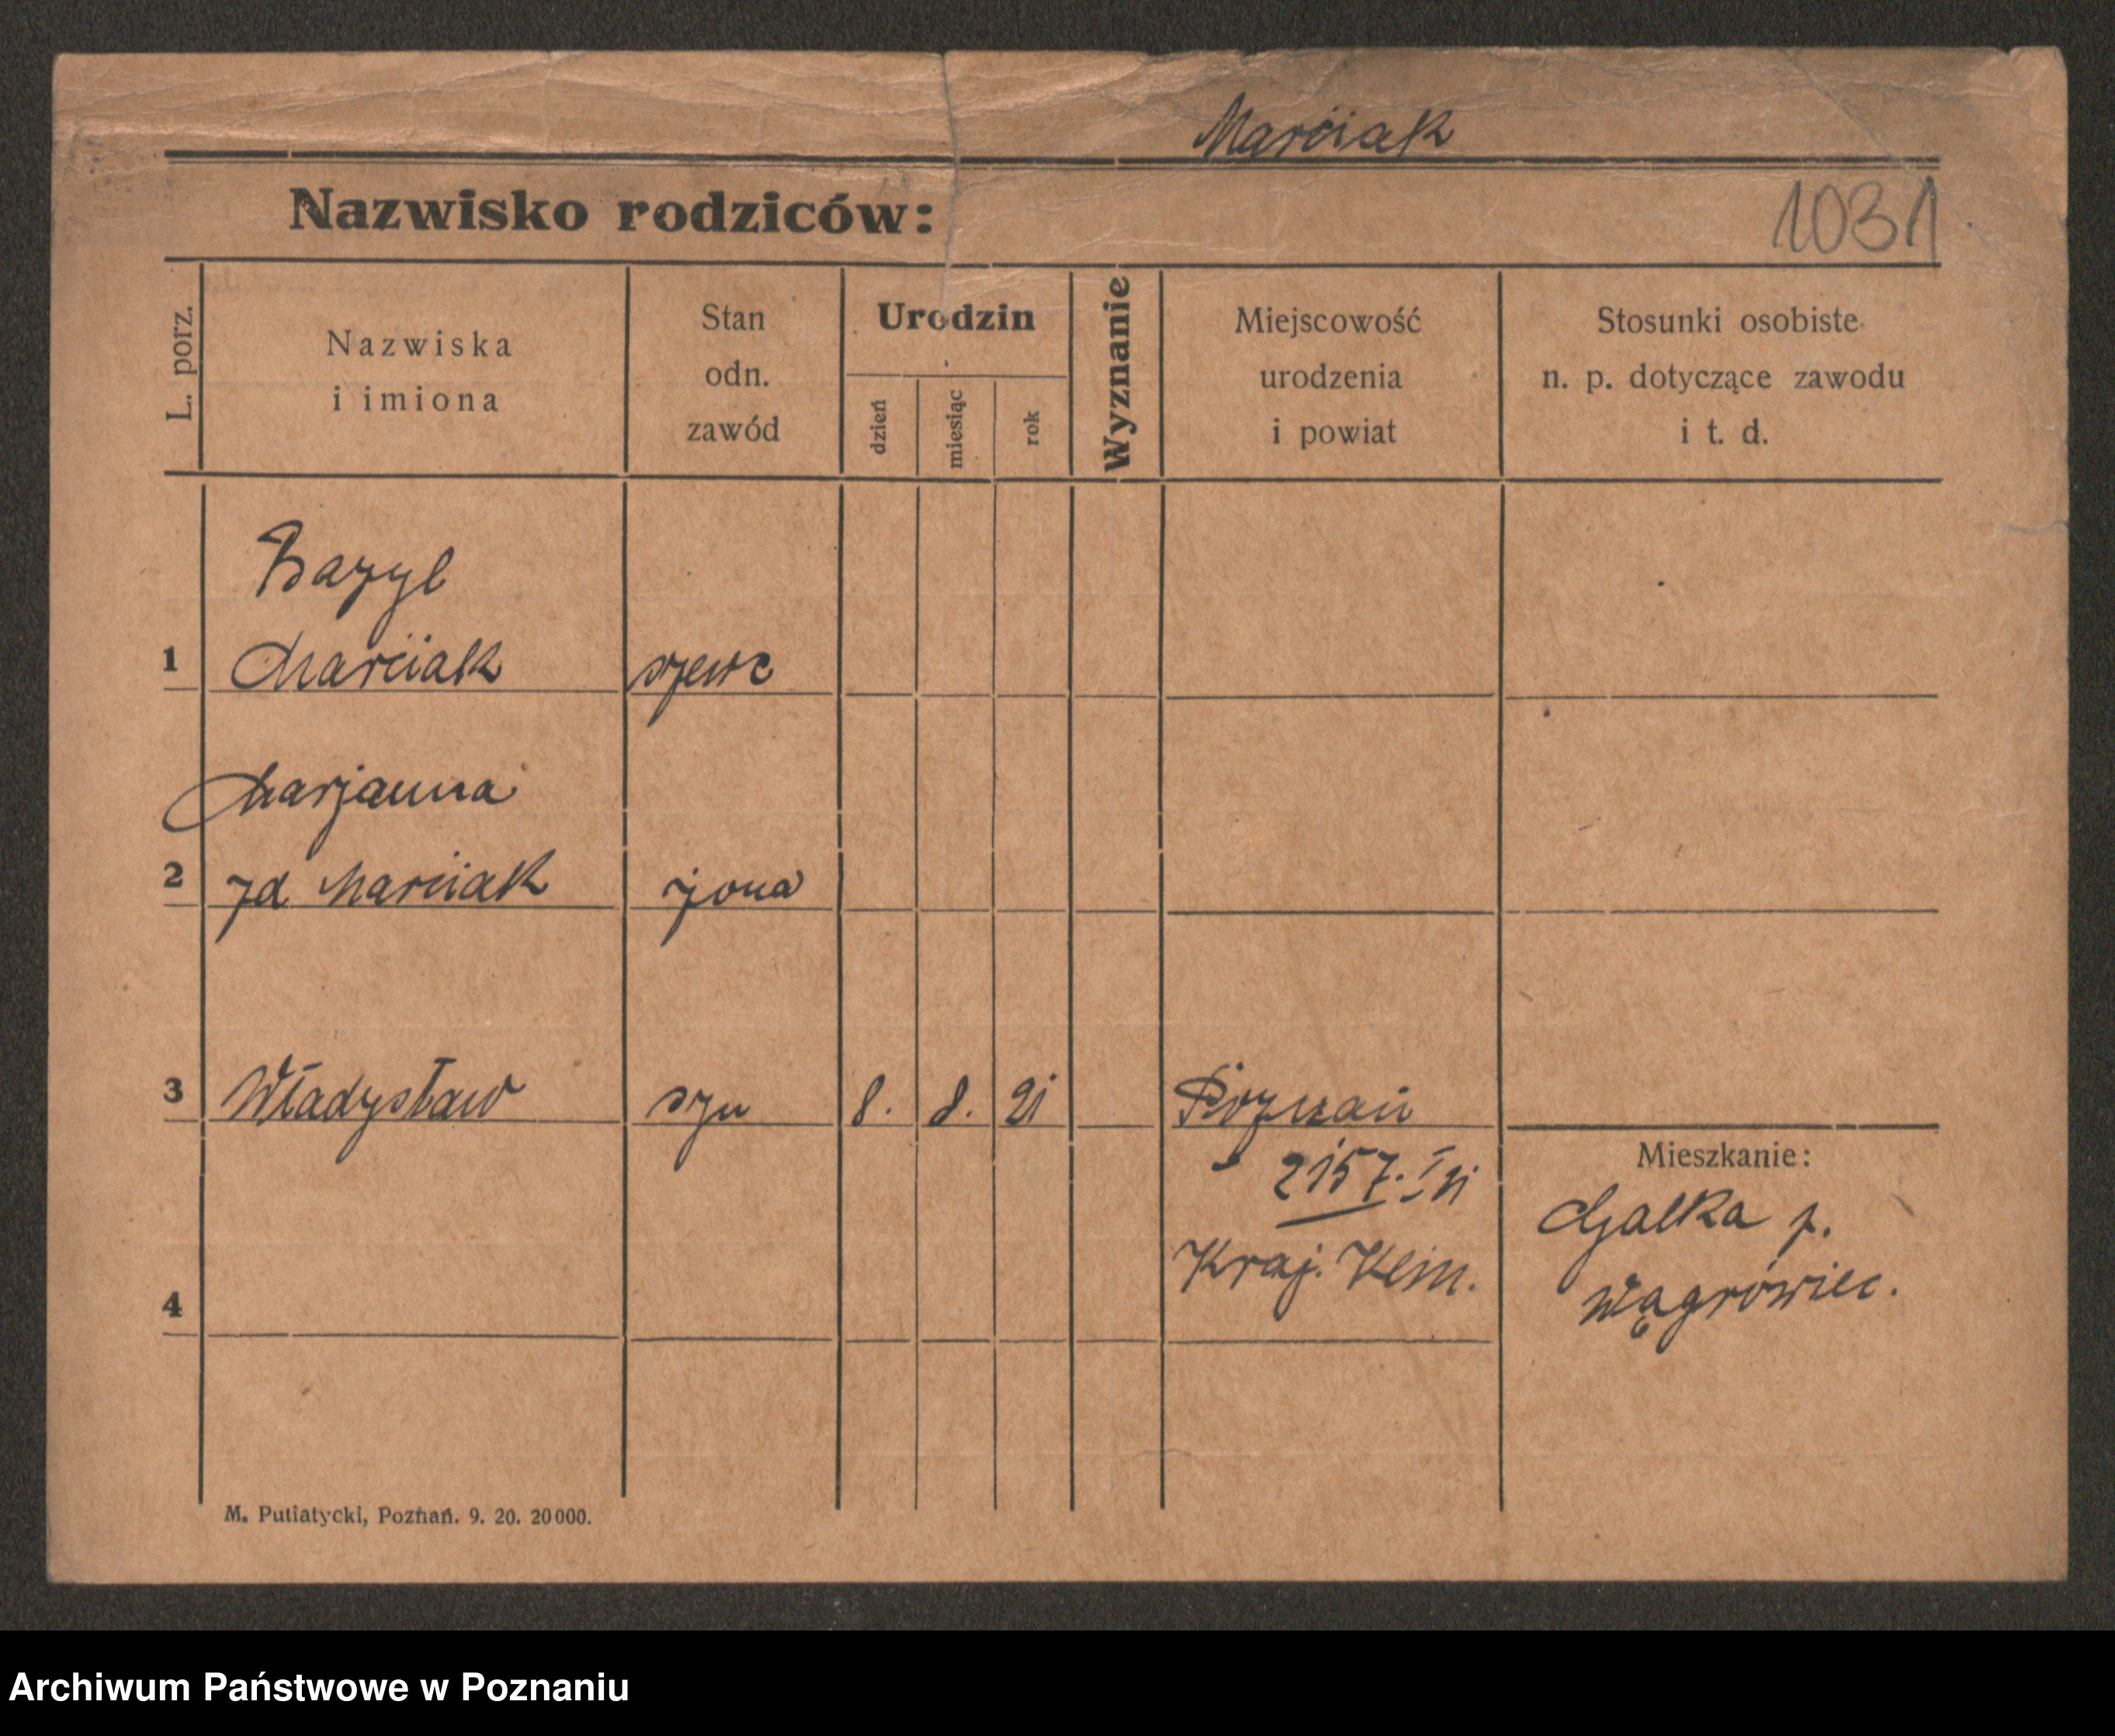 Marciak
Nazwisko rodziców:
1031
L. porz.
Nazwiska
i imiona
Stan
odn.
zawód
Urodzin
dzień
miesiąc
rok
Wyznanie
Miejscowość
urodzenia
i powiat
Stosunki osobiste
n. p. dotyczące zawodu
i t. d.
Bazyl
1 Marciak szewc
Marjanna
2 zd Marciak żona
3 Władysław syn 8. 8. 21 Poznań
2157. I 21
Kraj. Klin.
4
Mieszkanie:
Galka p.
Wągrówiec.
M. Putiatycki, Poznań. 9. 20. 20000.
Archiwum Państwowe w Poznaniu